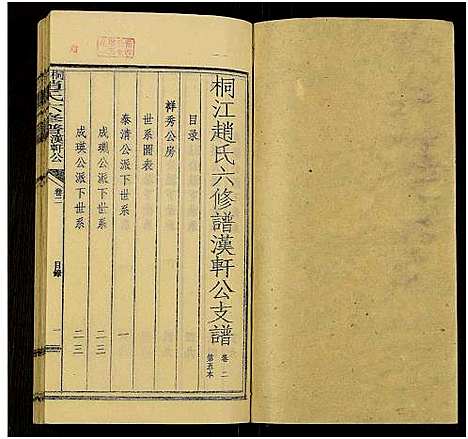 桐江趙氏六修譜漢軒公支譜 卷二 第五本
目录
群秀公房
世系圖表
泰清公派下世系 一
成瓓公派下世系 二三
成瑛公派下世系 二三
桐江趙氏六修譜漢軒公 卷二 目錄 一